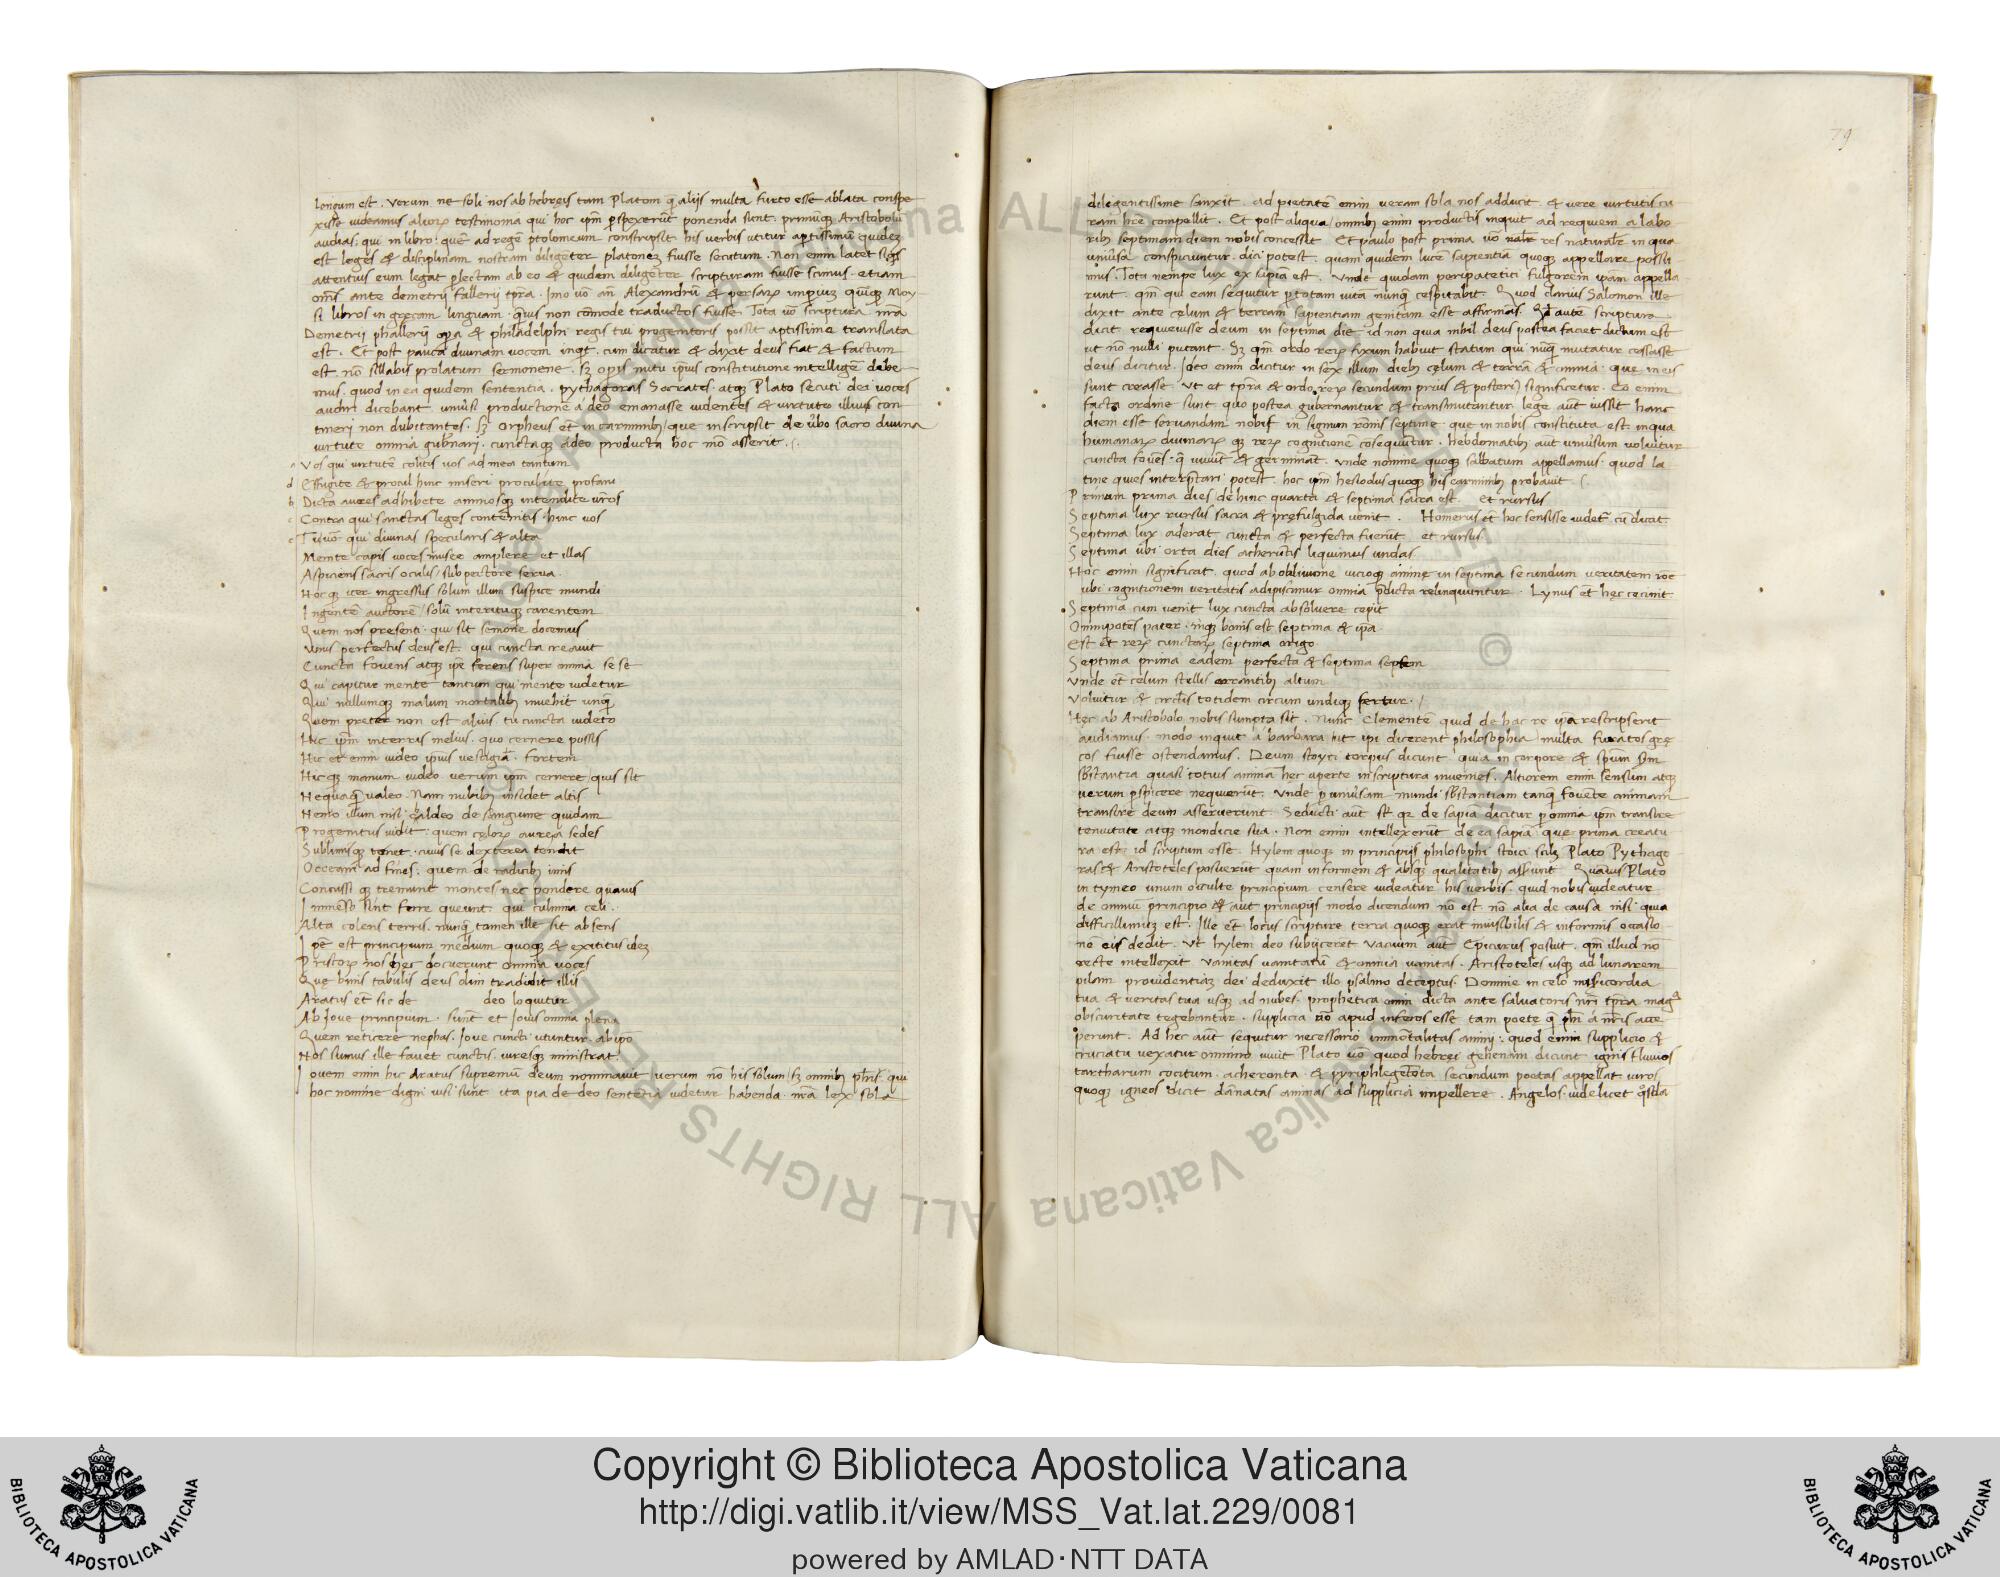 longum est. Verum ne soli nos ab hebreis tam Platom q̄ alijs multa furto esse ablata conspe
xisse uideamus alioꝝ testimonia qui hoc ip̄m ꝑspexerūt ponenda sunt. primūqꝫ Aristobolū
audias: qui in libro quē ad regē ptolomeum conscripsit his uerbis utitur apertissimū quidez
est leges & disciplinam nostram diligēter platonez fuisse secutum. Non enim latet
attentius eum legat ꝑlectam ab eo & quidem diligēter scripturam fuisse scimus etiam
ante demetrij fallerij tp̄ra. Imo uō añ Alexandrū & persaꝝ imperiuz Moy
si libros in grecam linguam quis non cōmode traductos fuisse. Tota uō scriptura nr̄a
Demetrij phallerij op̄a & philadelphi regis tui progenitoris possit aptissime translata
est. Et post pauca diuinam uocem inqt. cum dicatur & dixit deus fiat & factum
est nō sillabis prolatum sermonene. sꝫ opis mitu ip̄ius constitutione intelligēm debe
mus. quod in ea quidem sententia. pythagoras Socrates atqꝫ Plato secuti dei uoces
audiri dicebant uniūsi productionē a deo emanasse uidentes & uirtute illius con
tineri non dubitantes. sꝫ Orpheus et̄ in carminibꝫ que inscripsit de ūbo sacro diuina
uirtute omnia gub̄nari. cunctaqꝫ a deo producta hoc mō asserit.
a Vos qui uirtutē colitis uos ad mea tantum
d Effugite & procul hinc miseri procul ite profani
b Dicta aures adhibete animosqꝫ intendite ur̄os
c Contra qui sanctas leges contemitis hinc uos
e Tu uō qui diuinas specularis & alta
Mente capis uoces musee amplere et illas
Aspiciens sacris oculis sub pectore serua.
Hoc qꝫ iter ingressus solum illum suspice mundi
Ingentē auctorē solū interituqꝫ carentem
Quem nos presenti qui sit semone docemus
Unus perfectus deus est qui cuncta creauit
Cuncta fouens atqꝫ ip̄e ferens super omnia se se
Qui capitur mente tantum qui mente uidetur
Qui nullumqꝫ malum mortalibꝫ inuehit unq̄
Quem preter non est alius. tu cuncta uideto
Hic ip̄m in terris melius quo cernere possis
Hic et enim uideo ip̄ius uestigia fortem
Hic qꝫ manum uideo uerum ip̄m cernere quis sit
Nequaq̄ ualeo. Nam nubibꝫ insidet altis
Nemo illum nisi caldeo de sanguine quidam
Progenitus uidit: quem celoꝝ aurea sedes
Sublimisqꝫ tenet. cuius se dexterea tendit
Occeani ad fines: quem de radicibꝫ imis
Concussi qꝫ tremunt montes nec pondere quauis
Immēso sint ferre queunt. qui culmina celi.
Alta colens terris. nunq̄ tamen ille sit absens
Ip̄e est principium medium quoqꝫ & exititus idez
Priscoꝝ nos hec docuerunt omnia uoces
Que binis tabulis deus olim tradidit illis
Aratus et̄ sic de deo loquitur
Ab Ioue principium. sunt et Iouis omnia plena
Quem reticere nephas. Ioue cuncti utuntur. ab ip̄o
Nos sumus ille fauet cunctis. uiresqꝫ ministrat.
Iouem enim hic Aratus supremū deum nominauit uerum nō his solum sꝫ omnibꝫ ph̄is qui
hoc nomine digni uisi sunt ita pia de deo sentētia uidetur habenda. nr̄a lex sola
79
diligentissime sanxit. ad pietatē enim ueram sola nos adducit. & uere uirtutis cu
ram hr̄e compellit. Et post aliqua omnibꝫ enim productis inquit ad requiem a labo
ribꝫ septimam diem nobis concessit. Et paulo post prima uō res naturalr̄ in qua
uniūsa conspiciuntur. dici potest. quam quidem luce sapientia quoqꝫ appellare possu
mus. Tota nempe lux ex sapiā est. Unde quidam peripatetici fulgorem ip̄am appella
runt. qm̄ qui eam sequitur ꝑ totam uita nunq̄ cespitabit. Quod clarius Salomon ille
dixit ante celum & terram sapientiam genitam esse affirmās. Qd autē scriptura
dicit requieuisse deum in septima die id non qua nihil deus postea faciet dictum est
ut nō nulli putant. Sꝫ qm̄ ordo reꝝ fixum habuit statum qui nūq̄ mutatur cessasse
deus dicitur. Io̅ enim dicitur in sex illum diebꝫ celum & terrā & omnia que in eis
sunt creasse. Ut et tp̄ra & ordo reꝝ secundum prius & posteriꝰ significetur. Eo enim
facta ordine sunt. quo postea gubernantur & transmutantur. lege aut̄ iussit hanc
diem esse seruandam nobis in signum rōnis septime que in nobis constituta est. in qua
humanaꝝ diuinaꝝ qꝫ reꝝ cognitionē cōsequūtur. Hebdomatibꝫ aut̄ uniūsum uoluitur
cuncta fouēs q̄ uiuūt & germināt. Unde nomine quoqꝫ sabbatum appellamus. quod la
tine quies interp̄tari potest. hoc ip̄m hesiodus quoqꝫ his carminibꝫ probauit.
Primum prima dies dehinc quarta & septima sacra est. et rursus
Septima lux rursus sacra & prefulgida uenit. Homerus et̄ hoc sensisse uidet̄ cū dicit
Septima lux aderat cuncta & perfecta fuerūt. et rursus.
Septima ubi orta dies acherūtis liquimus undas.
Hoc enim significat. quod ab obliuione uicioqꝫ anime in septima secundum ueritatem rōe
ubi cognitionem ueritatis adipiscimur omnia p̄dicta relinquuntur. Lynus et̄ hec cecinit.
Septima cum uenit lux cuncta absoluere cepit
Omnipotēs pater. inqꝫ bonis est septima & ip̄a
Est et reꝝ cunctaꝝ septima origo.
Septima prima eadem perfecta & septima septem
Unde et̄ celum stellis errantibꝫ altum
Voluitur & circl̄is totidem circum undiqꝫ fertur.
Hec ab Aristobolo nobis sumpta sit. Nunc Clementē quid de hac re ip̄a rescripserit
audiamus. modo inquit a barbara ut ip̄i dicerent philosophia multa furatos gre
cos fuisse ostendamus. Deum stoyci corpus dicunt quia in corpore & spūm
sb̄stantia quasi totius anima hec aperte in scriptura inuenies. Altiorem enim sensum atqꝫ
uerum ꝑspicere nequerūt. Unde ꝑ uniūsam mundi sb̄stantiam tanq̄ fouēte animam
transire deum asseruerunt. Seducti aut̄ st̄ qꝛ de sapia dicitur ꝑ omnia ip̄m transire
tenuitate atqꝫ mondicie sua. Non enim intellexerūt de ea sapia que prima creatu
ra est: id scriptum esse. Hylem quoqꝫ in principijs philosophi stoici scilꝫ Plato Pythago
ras & Aristoteles posuerūt quam informem & absqꝫ qualitatibꝫ asserunt. Quāuis Plato
in tymeo unum occulte principium censere uideatur his uerbis. quid nobis uideatur
de omniū principio & aut principijs modo dicendum nō est nō alia de causa nisi quia
difficillimuz est. Ille et̄ locus scripture terra quoqꝫ erat inuisibilis & informis occasio
nē eis dedit. Ut hylem deo subijceret Vacuum aut̄ Epicurus posuit. qm̄ illud nō
recte intellexit. Vanitas uanitatū & omnia uanitas. Aristoteles usqꝫ ad lunarem
pilam prouidentiaz dei deduxit illo psalmo deceptus. Domine in celo mīsericordia
tua & ueritas tua usqꝫ ad nubes. prophetica enim dicta ante saluatoris nr̄i tp̄ra mag
obscuritate tegebantur. supplicia uō apud inferos esse tam poete q̄ ph̄i a nr̄is acce
perunt. Ad hec aut̄ sequitur necessario immortalitas animi: quod enim supplicio &
cruciatu uexatur omnino uiuit Plato uō quod hebrei gehenam dicunt ignis fluuios
tartharum cocitum. acheronta & pyriphlegetōta secundum poetas appellat uiros
quoqꝫ igneos dicit dānatas animas ad supplicia impellere. Angelos uidelicet
Copyright © Biblioteca Apostolica Vaticana
http://digi.vatlib.it/view/MSS_Vat.lat.229/0081
powered by AMLAD·NTT DATA
BIBLIOTECA APOSTOLICA VATICANA
BIBLIOTECA APOSTOLICA VATICANA